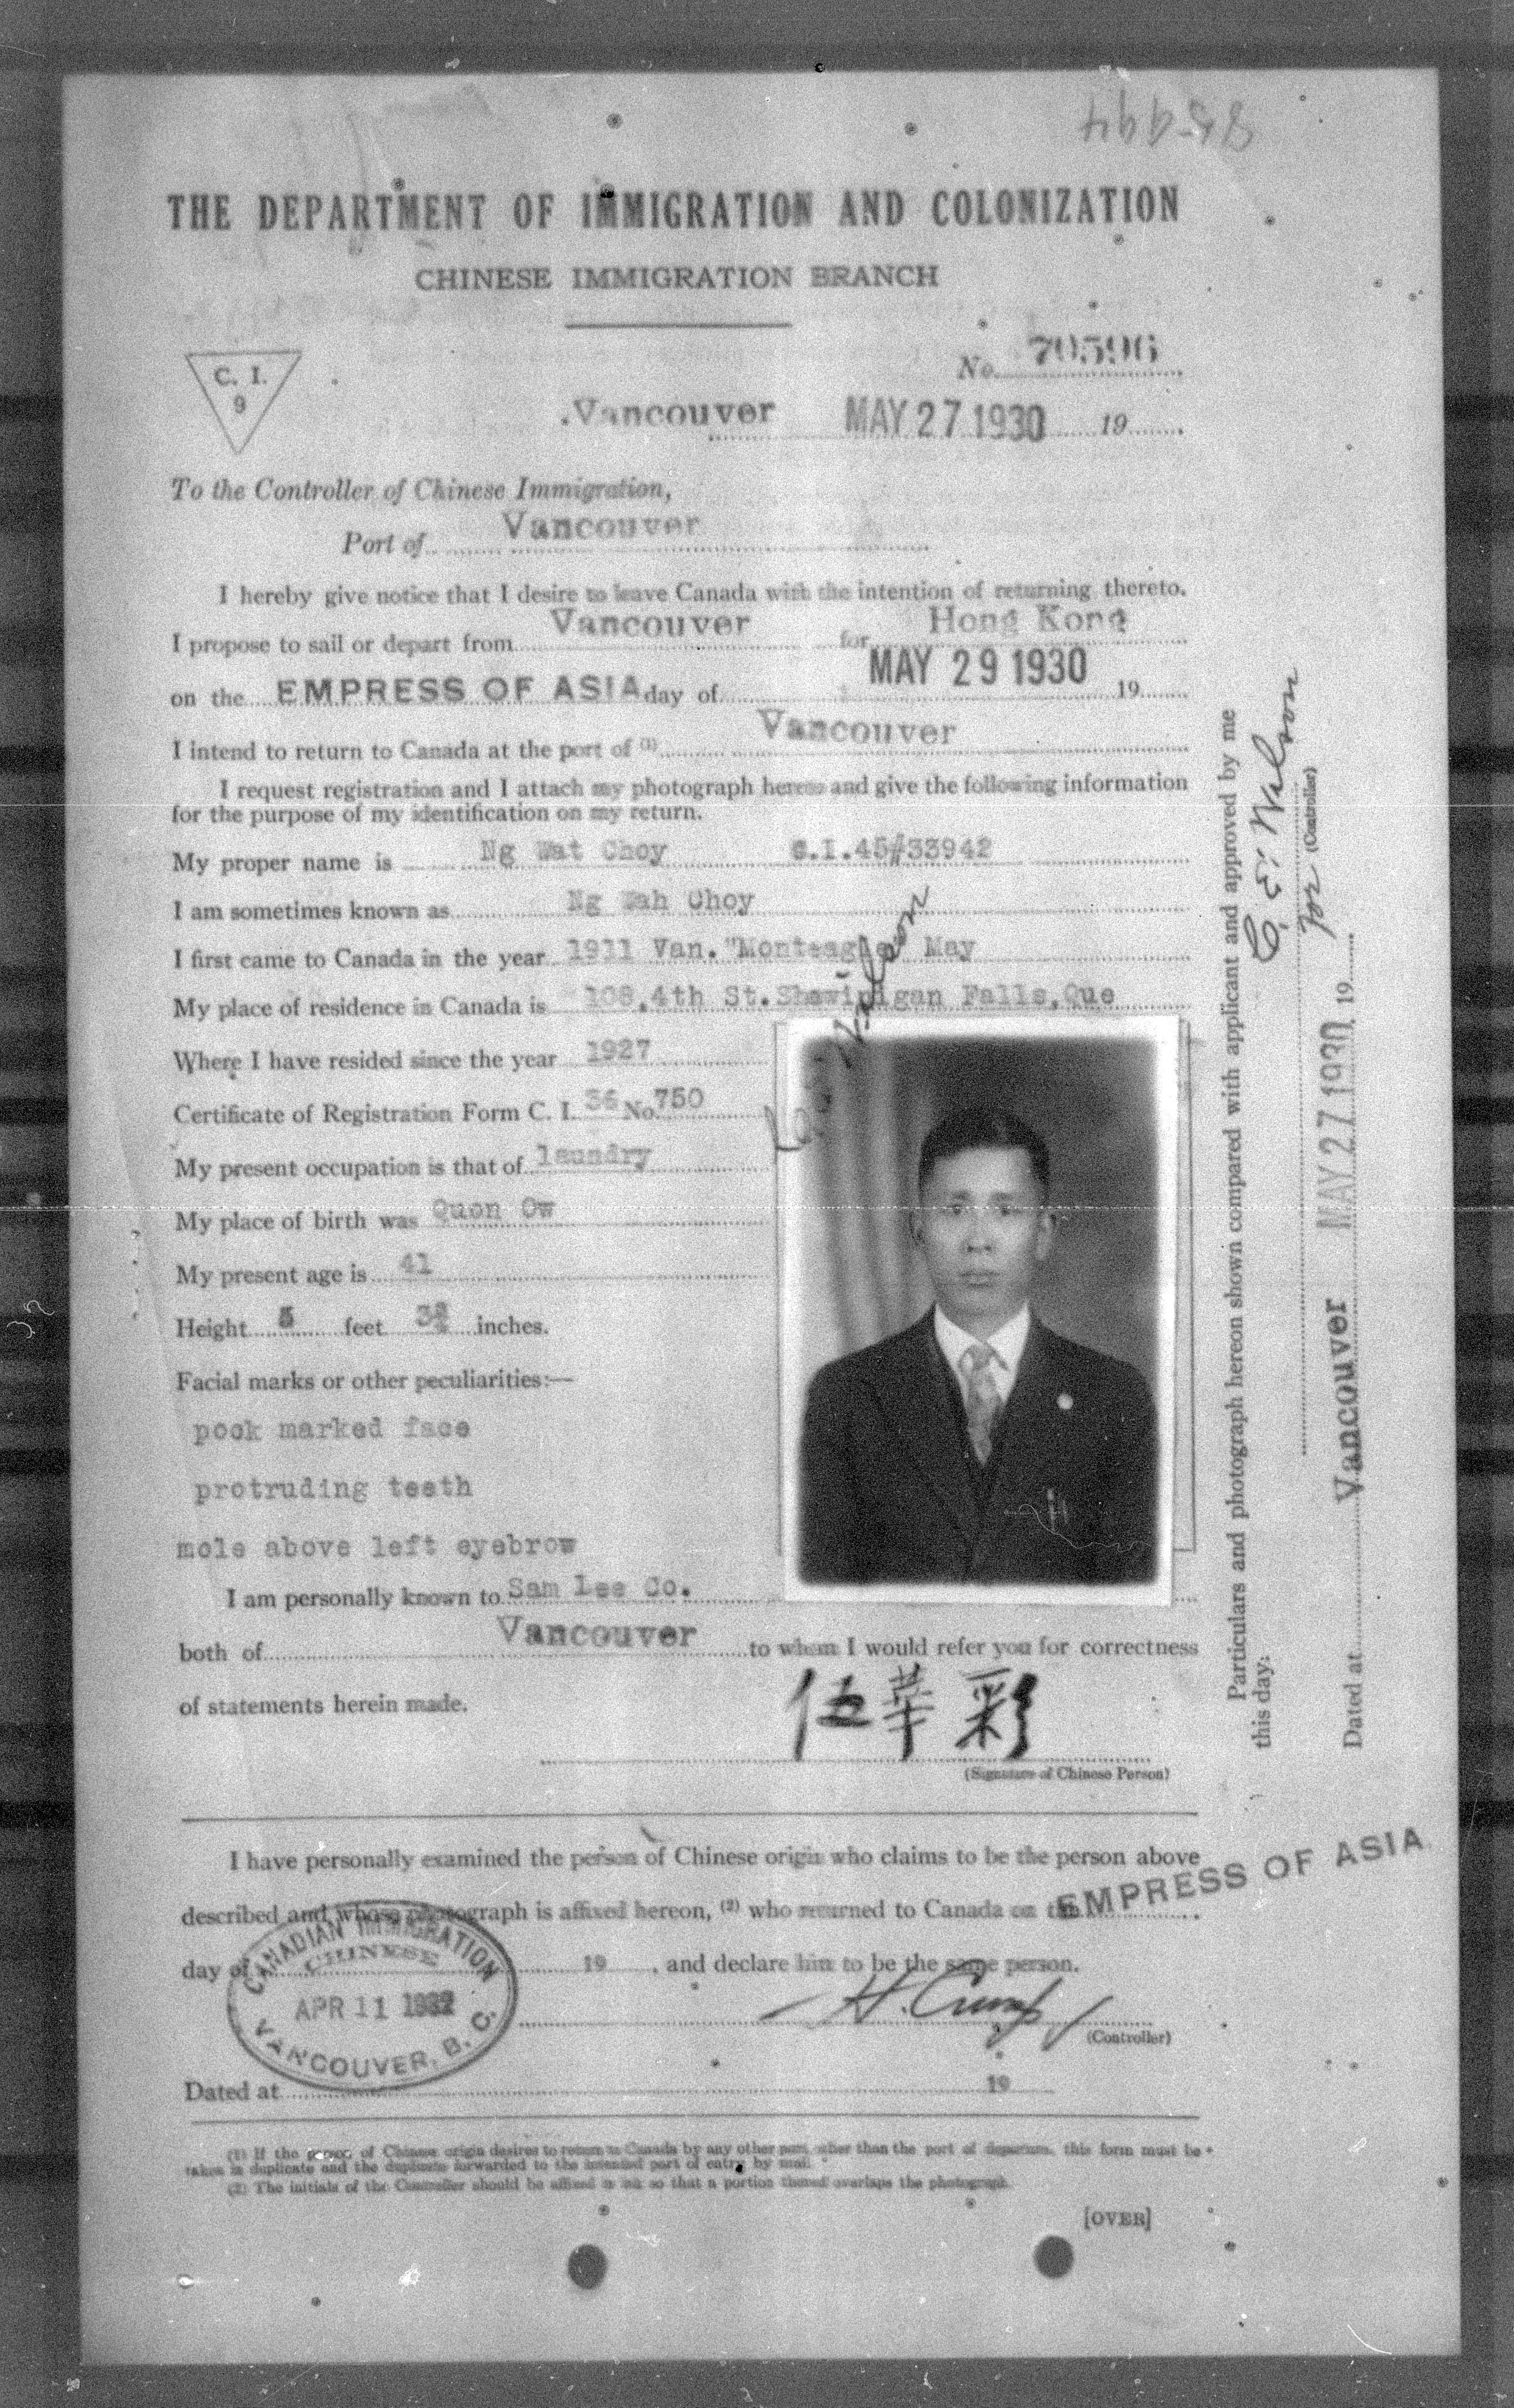 THE DEPARTMENT OF IMMIGRATION AND COLONIZATION
CHINESE IMMIGRATION BRANCH
C. I.
9
No. 70596
Vancouver MAY 27 1930 19
To the Controller of Chinese Immigration,
Port of Vancouver
I hereby give notice that I desire to leave Canada with the intention of returning thereto.
I propose to sail or depart from Vancouver for Hong Kong
on the EMPRESS OF ASIA day of MAY 29 1930 19
I intend to return to Canada at the port of (1) Vancouver
I request registration and I attach my photograph hereto and give the following information
for the purpose of my identification on my return.
My proper name is Ng Wat Choy C.I.45#33942
I am sometimes known as Ng Wah Choy
I first came to Canada in the year 1911 Van. "Monteagle" May
My place of residence in Canada is 108,4th St.Shawinigan Falls,Que
Where I have resided since the year 1927
Certificate of Registration Form C. I. 36 No. 750
My present occupation is that of laundry
My place of birth was Quon Ow
My present age is 41
Height 5 feet 3¾ inches.
Facial marks or other peculiarities:—
pock marked face
protruding teeth
mole above left eyebrow
I am personally known to Sam Lee Co.
both of Vancouver to whom I would refer you for correctness
of statements herein made.
伍華彩
(Signature of Chinese Person)
Particulars and photograph hereon shown compared with applicant and approved by me
this day:
C. E. Wilson
for (Controller)
Dated at Vancouver MAY 27 1930 19
I have personally examined the person of Chinese origin who claims to be the person above
described and whose photograph is affixed hereon, (2) who returned to Canada on the EMPRESS OF ASIA
day of 19 , and declare him to be the same person.
CANADIAN IMMIGRATION
CHINESE
APR 11 1932
VANCOUVER, B. C.
H. Crump
(Controller)
Dated at 19
(1) If the person of Chinese origin desires to return to Canada by any other port other than the port of departure, this form must be
taken in duplicate and the duplicate forwarded to the intended port of entry by mail.
(2) The initials of the Controller should be affixed in ink so that a portion thereof overlaps the photograph.
[OVER]